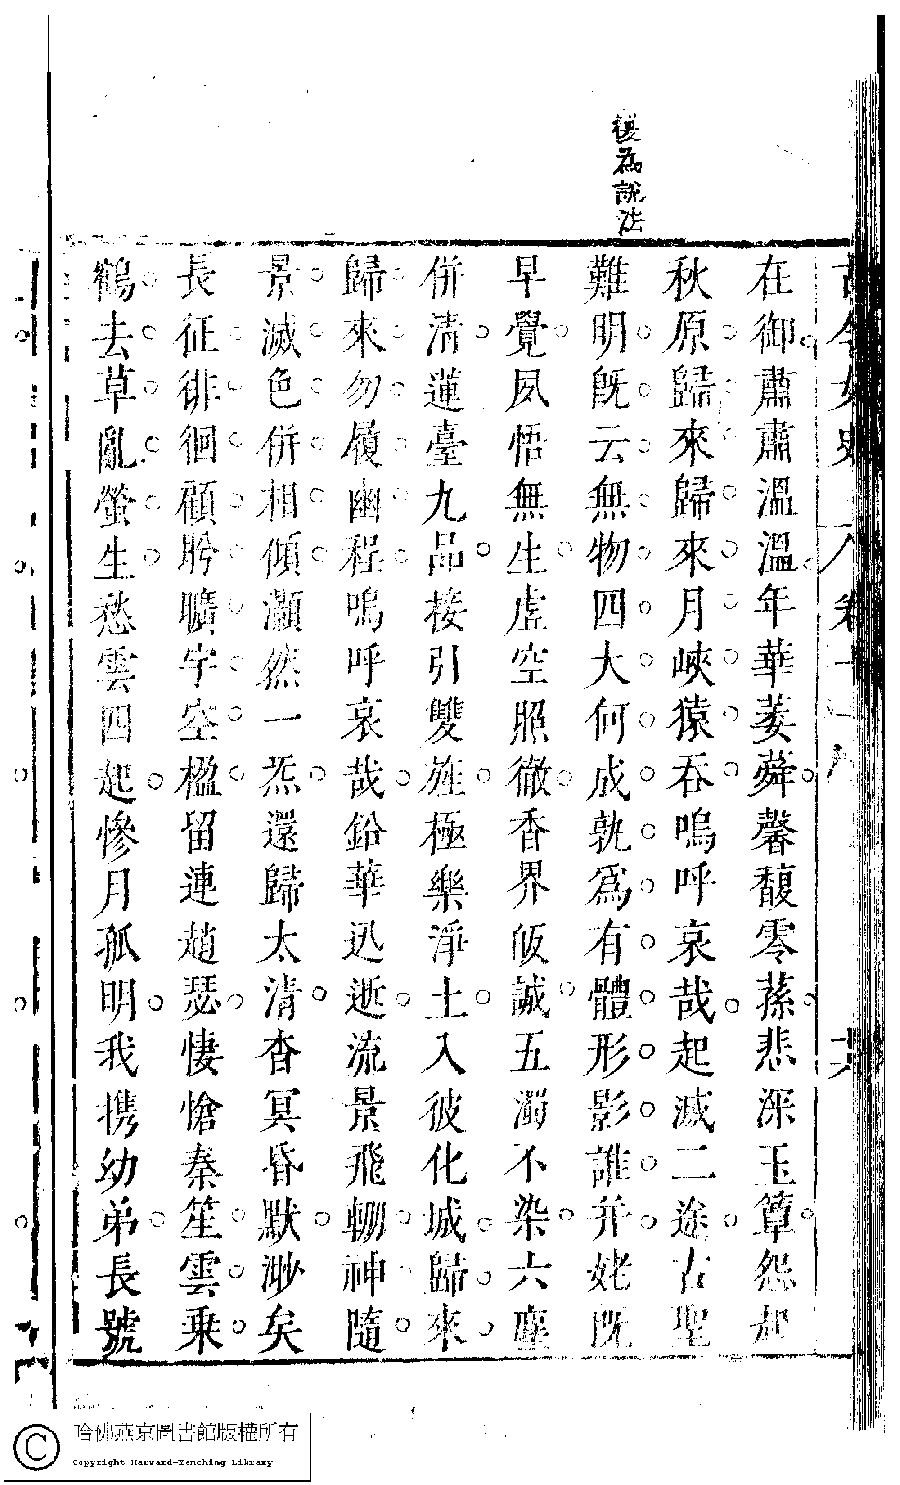 復為說法
古今女史 八卷十
在御肅肅溫溫年華萎蕣馨馥零蓀悲深玉簟怨起
秋原歸來歸來月峽猿吞嗚呼哀哉起滅二途古聖
難明既云無物四大何成孰爲有體形影誰并姥既
早覺夙悟無生虛空照徹香界皈誠五濁不染六塵
併清蓮臺九品接引雙旌極樂淨土入彼化城歸來
歸來勿履幽程嗚呼哀哉鉛華迅逝流景飛輣神隨
景滅色併相傾灝然一炁還歸太清杳冥昏默渺矣
長征徘徊顧盻曠宇空楹留連趙瑟悽愴秦笙雲乘
鶴去草亂螢生愁雲四起慘月孤明我携幼弟長號
哈佛燕京圖書館版權所有
Copyright Harvard-Yenching Library